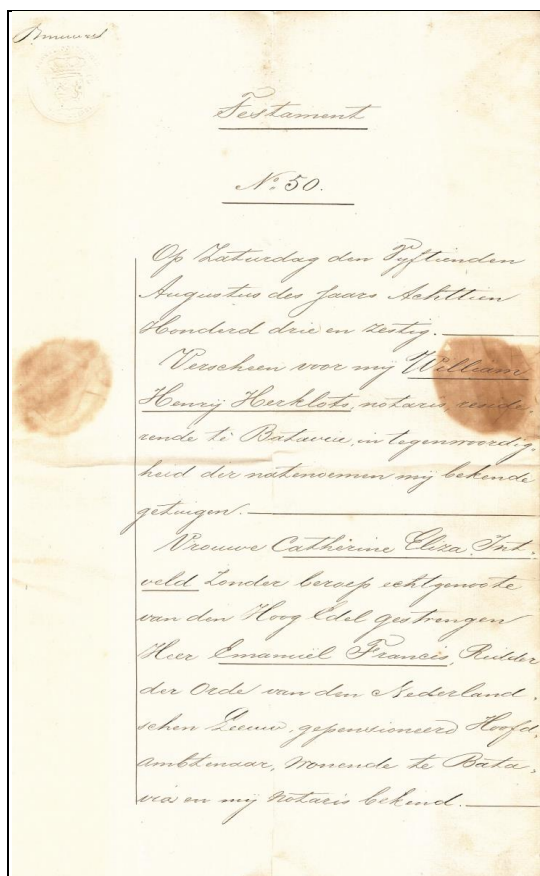 Testament
No. 50.
Op Zaturdag den Vyftienden
Augustus des Jaars Achttien
Honderd drie en Zestig.
Verscheen voor my William
Henry Herklots, notaris, resi-
rende te Batavia, in tegenwoordig-
heid der natenoemen my bekende
getuigen.
Vrouwe Catherine Eliza Int-
veld Zonder beroep echtgenoote
van den Hoog Edel gestrengen
Heer Emanuel Francis, Ridder
der Orde van den Nederland-
schen Leeuw, gepensioneerd Hoofd-
ambtenaar, Wonende te Bata-
via en my Notaris bekend.